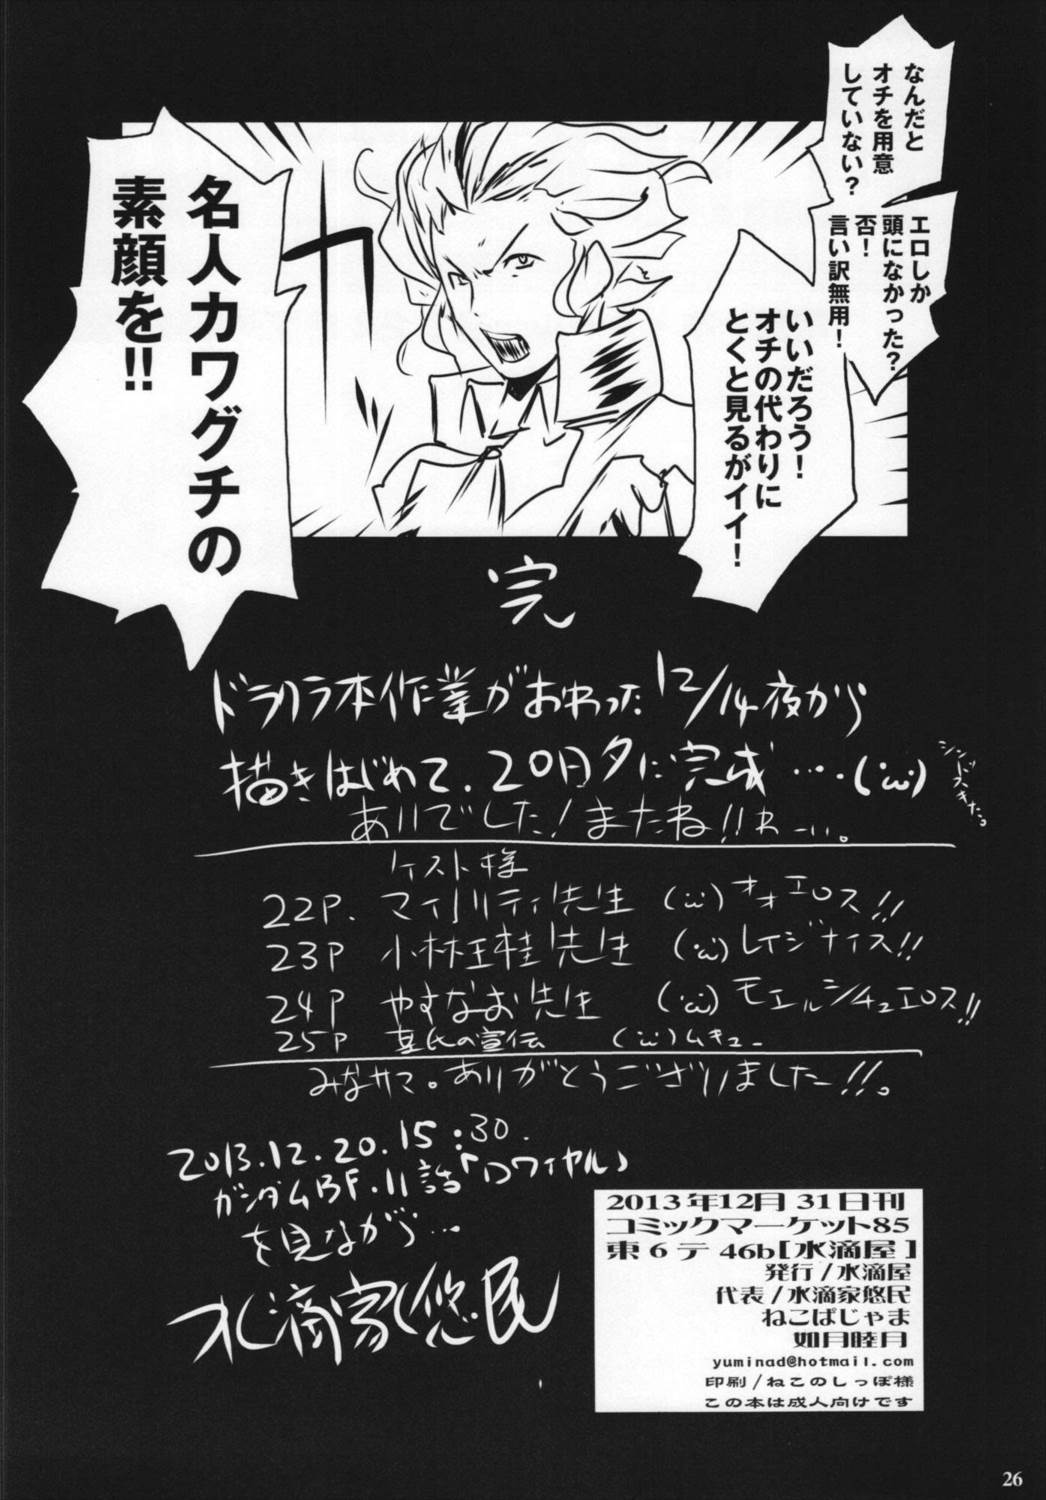 なんだと
オチを用意
していない?
エロしか
頭になかった?
否!
言い訳無用!
いいだろう!
オチの代わりに
とくと見るがイイ!
名人カワグチの
素顔を!!
完
ドラリラ本作業がおわった12/14夜から
描きはじめて、20日夕に完成…‥(´ω`)
ありでした!またね!!
ゲスト様
22P. マイノリティ先生 オオエロス!!
23P 小林王桂先生 レイジナイス!!
24P やすなお先生 モエルシチュエロス!!
25P 某氏の宣伝 ムキュー
みなサマ。ありがとうございましたー!!。
2013.12.20.15:30.
ガンダムBF.11話「ロワイヤル」
を見ながら…
水滴家悠民
2013年12月31日刊
コミックマーケット85
東6テ46b[水滴屋]
発行/水滴屋
代表/水滴家悠民
ねこぱじゃま
如月睦月
yuminad@hotmail.com
印刷/ねこのしっぽ様
この本は成人向けです
26